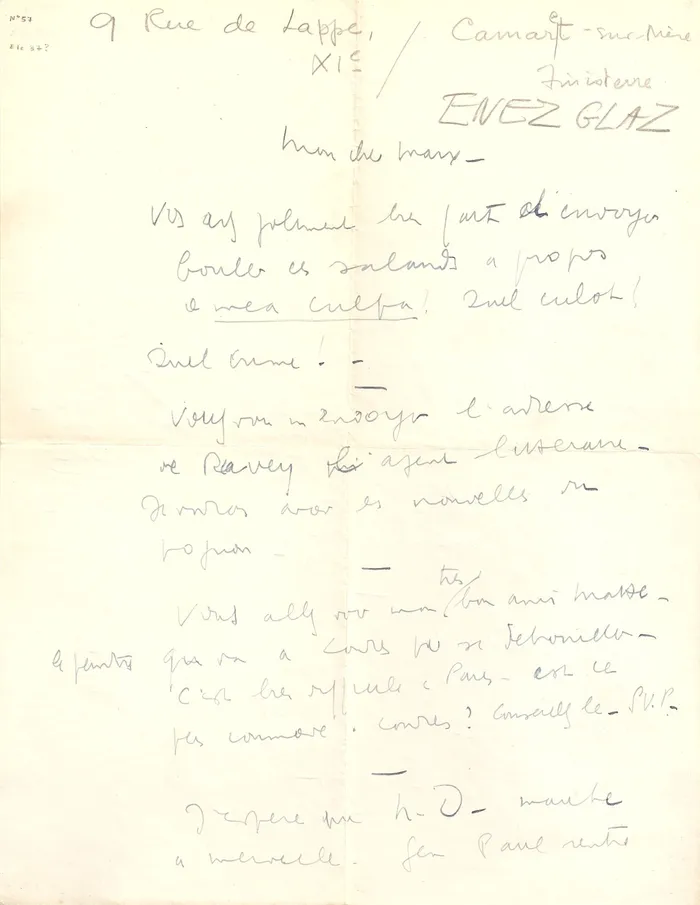 N°57
9 Rue de Lappe,
XIe
Camaret-sur-Mère
Finisterre
ENEZ GLAZ
Mon cher Marx –
Vs avez joliment bien fait d'envoyer
bouler ces salauds à propos
de mea culpa! Quel culot!
Quel crime! –
Voulez vous m'envoyer l'adresse
de Ravey agent litteraire –
Je voudrais avoir des nouvelles du
pognon –
Vous allez voir mon très bon ami
le peintre qui va a Londres pr se debrouiller –
C'est très difficile a Paris – est ce
pas commode. Londres? Conseillez le – S.V.P.
J'espere que h. D – marche
a merveille. Gen Paul rentre